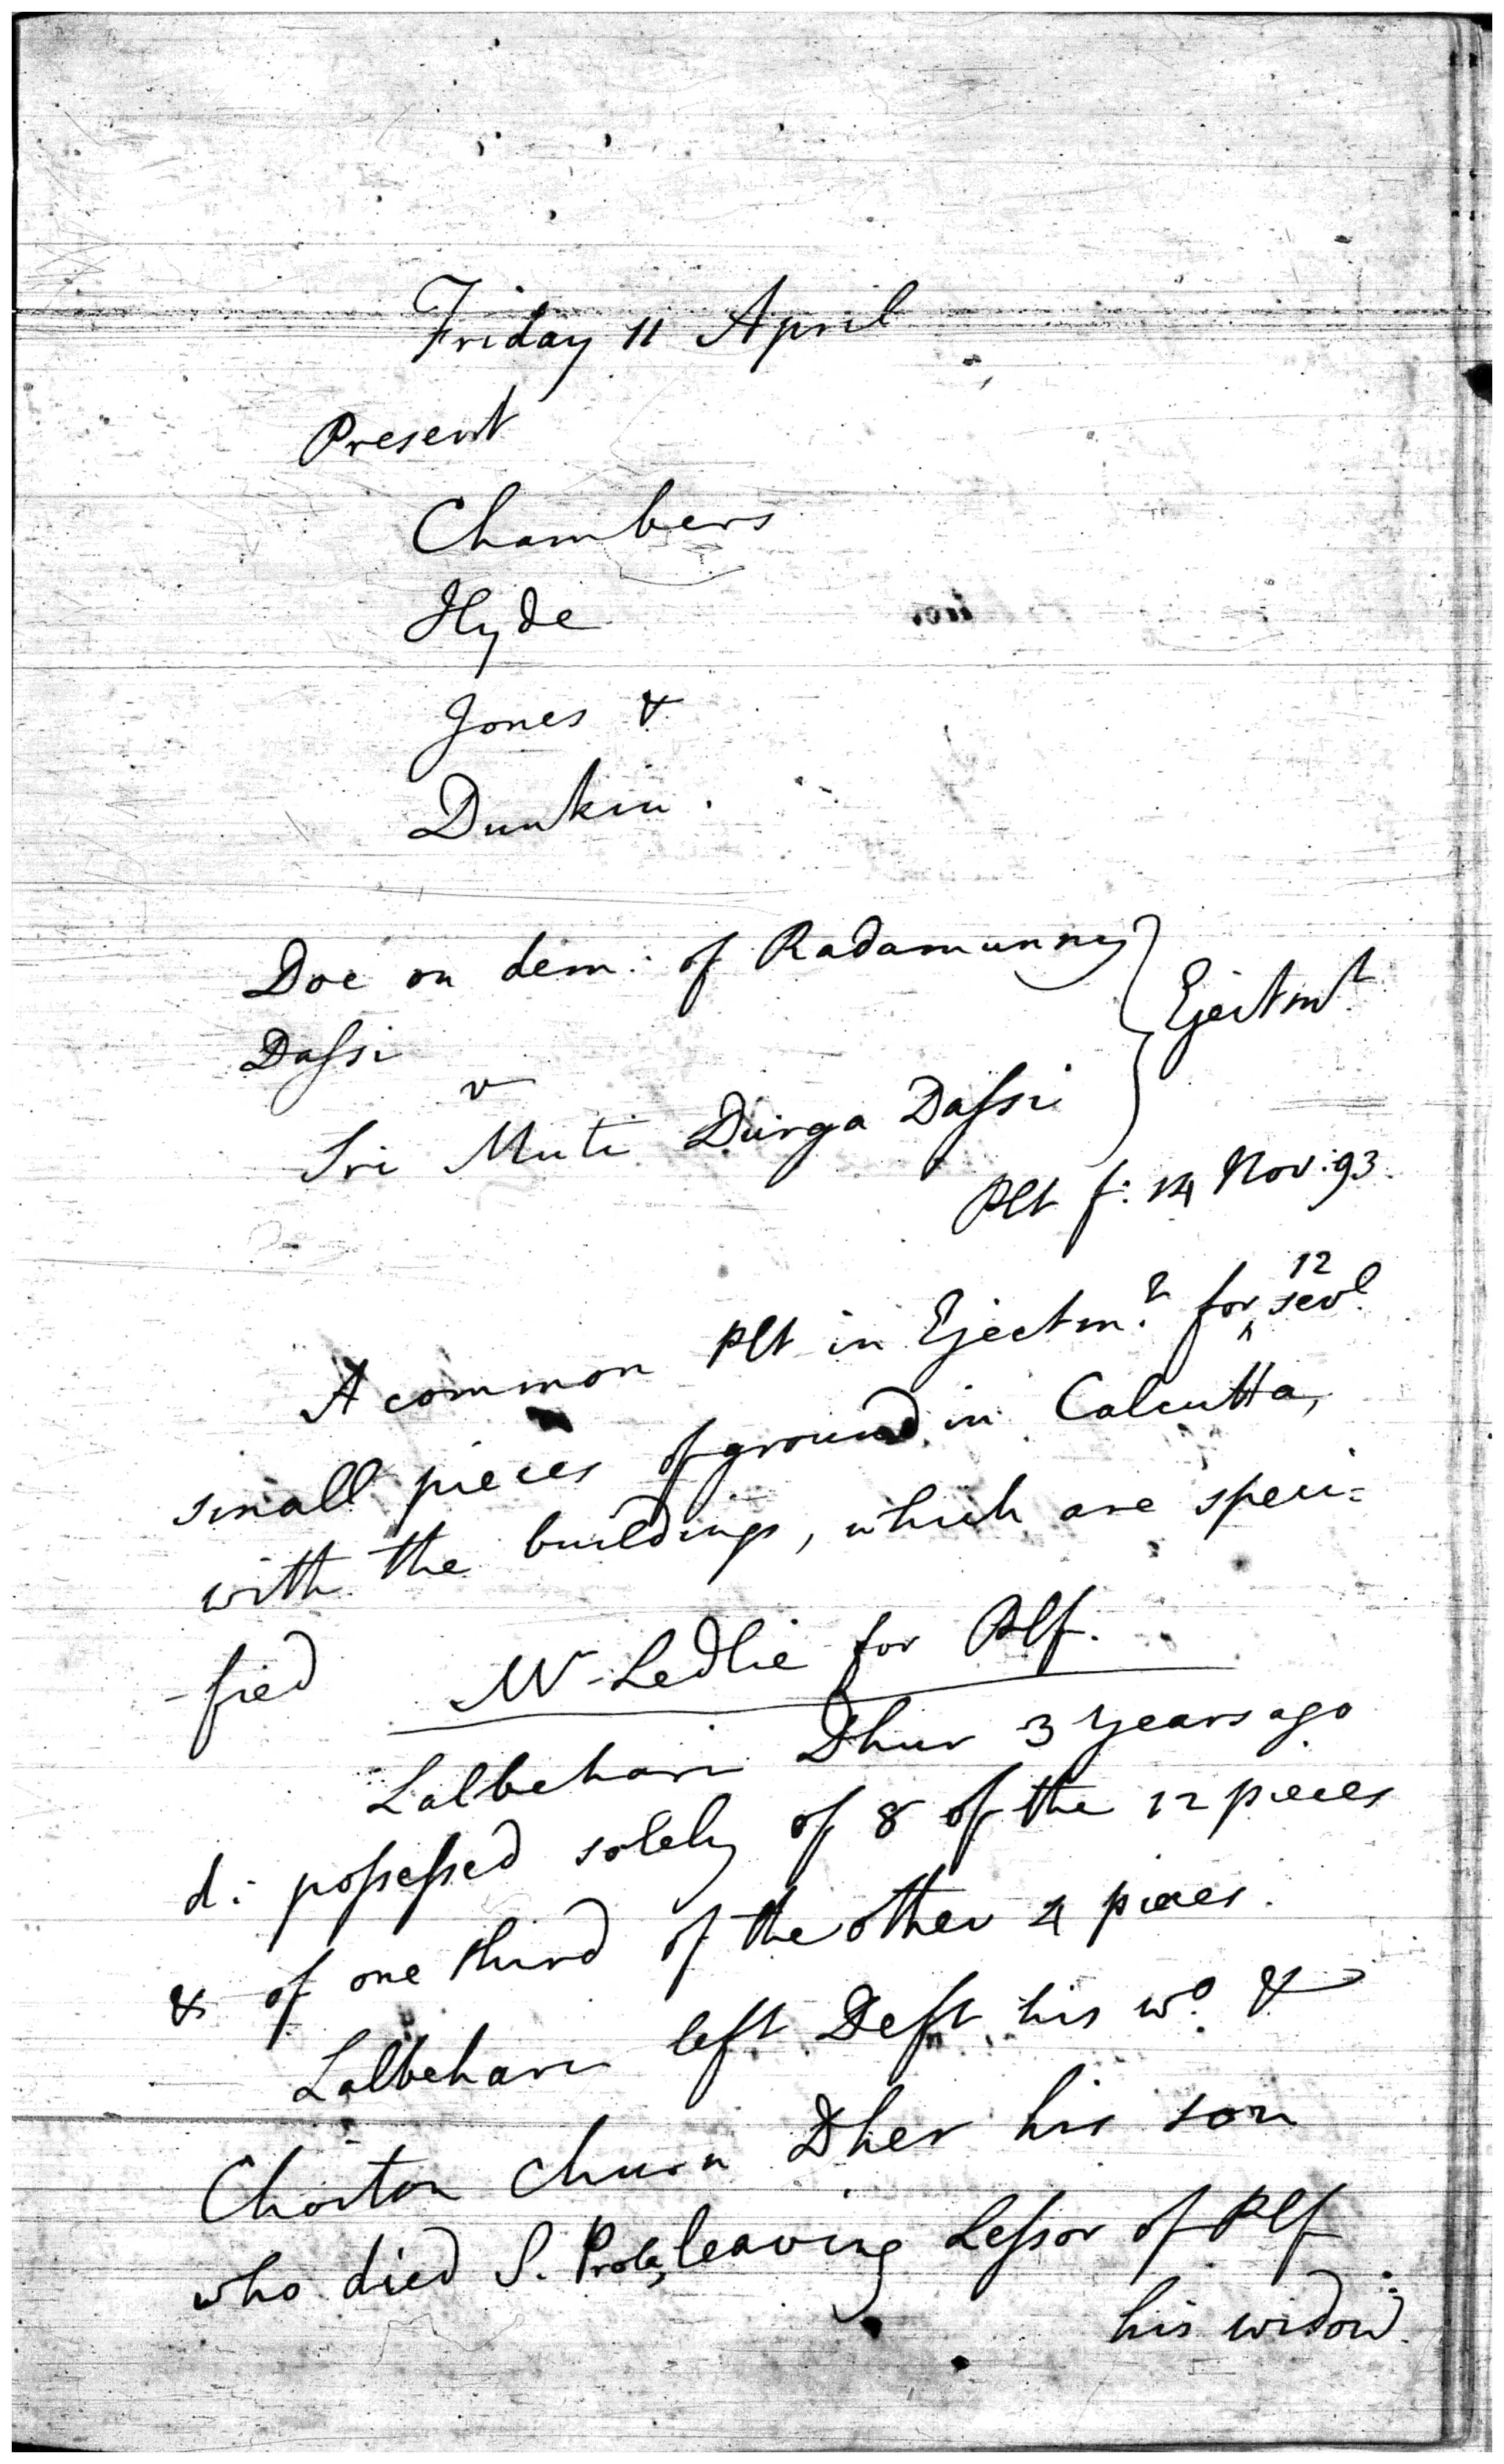 Friday 11 April
Present
Chambers
Hyde
Jones &
Dunkin.
Doe on dem: of Radamunny
Dassi
v
Sri Muti Durga Dassi
Ejectmt.
Plt f: 14 Nov: 93.
A common Plt in Ejectm.t for 12 sevl.
small pieces of ground in Calcutta,
with the buildings, which are speci=
-fied
Mr Ledlie for Plf.
Lalbehari Dhur 3 years ago
d: possessed solely of 8 of the 12 pieces
& of one third of the other 4 pieces.
Lalbehari left Deft his wo. &
Choiton Churn Dher his son
who died S. Prole, leaving Lessor of Plf
his widow.